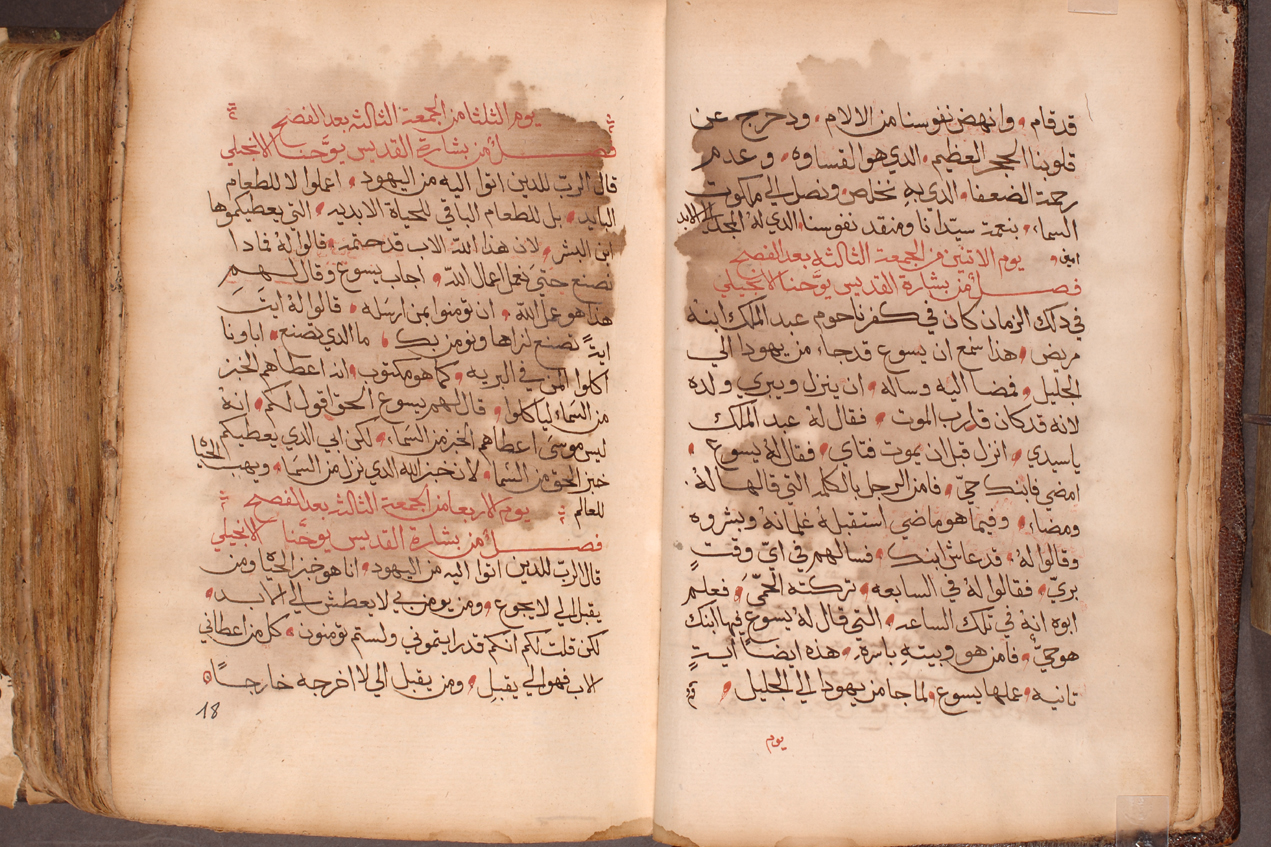 قد قام، وانهض نفوسنا من الالام، ودحرج عن
قلوبنا الحجر العظيم، الذي هو القساوه، وعدم
رحمة الضعفا، الذي به نخلص، ونصل الى ملكوت
السماء، بنعمة سيدنا ومنقد نفوسنا، الذي له المجد الى الابد
امين، يوم الاثنين من الجمعة الثالثة بعد الفصح
فصل من بشارة القديس يوحنا الانجيلي
في ذلك الزمان كان في كفرناحوم عبد الملك ابنه
مريض، هذا سمع ان يسوع قد جاء من يهودا الى
الجليل، فمضا اليه وساله، ان ينزل ويبري ولده
لانه قد كان قارب الموت، فقال له عبد الملك
ياسيدي، انزل قبل ان يموت فتاي، فقال له يسوع،
امضي فابنك حي، فامن الرجل بالكلمه التي قالها له
ومضاء، وفيما هو ماضي استقبله غلمانه وبشروه
وقالوا له، قد عاش ابنك، فسالهم في اي وقت
بري، فقالوا له في السابعه، تركته الحمى، فعلم
ابوه انه في تلك الساعه، التي قال له يسوع فيها ابنك
هو حي، فامن هو وبيته باسره، هذه ايضا ايت
تانيه، عملها يسوع، لما جا من يهودا الى الجليل،
يوم
يوم الثلثا من الجمعة الثالثة بعد الفصح
فصل من بشارة القديس يوحنا الانجيلي
قال الرب للذين اتوا اليه من اليهود، اعملوا لا للطعام
البايد، بل للطعام الباقي للحياة الابديه، التي يعطيكموها
ابن البشر، لان هذا الله الاب قد ختمه، قالوا له فمادا
نصنع حتى نعمل اعمال الله، اجاب يسوع وقال لهم
هذا هو عمل الله، ان تومنوا بمن ارسله، قالوا له ايت
ايت تصنع لنراها ونومن بك، ما الذي تصنع، اباونا
اكلوا المن في البريه، كما هو مكتوب، انه اعطاهم الخبز
من السماء لياكلوا، قال لهم يسوع الحق اقول لكم، انه
ليس موسى اعطاهم الخبز من السماء، لكن ابي الذي يعطيكم
خبز الحق من السما، لان خبز الله الذي نزل من السما، ويهب الحياه
للعالم، يوم الاربعا من الجمعة الثالثة بعد الفصح
فصل من بشارة القديس يوحنا الانجيلي
قال الرب للذين اتوا اليه من اليهود، انا هو خبز الحياه ومن
يقبل الي لا يجوع، ومن يومن بي لا يعطش الى الابد،
لكن قلت لكم انكم قد رايتموني ولستم تومنون، كل من اعطاني
الاب فهو الي يقبل، ومن يقبل الي لا اخرجه خارجا
18